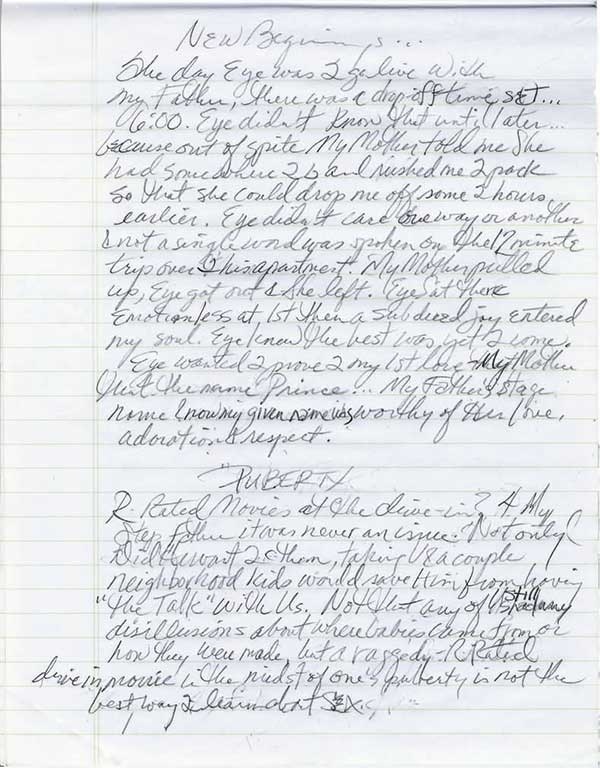 New Beginnings...
The day Eye was 2 go live with
my Father, there was a drop off time set...
6:00. Eye didn't know that until later...
because out of spite My Mother told me she
had somewhere 2 b and rushed me 2 pack
so that she could drop me off some 2 hours
earlier. Eye didn't care one way or another
& not a single word was spoken on the 12 minute
trip over 2 his apartment. My Mother pulled
up, Eye got out & she left. Eye sat there
Emotionless at 1st then a subdued joy entered
my soul. Eye knew the best was yet 2 come.
Eye wanted 2 prove 2 my 1st love - My Mother
that the name Prince... My Father's stage
name & now my given name was worthy of Her love,
adoration & respect.
"PUBERTY
R-Rated Movies at the drive-in? 4 My
Step father it was never an issue. Not only
Did He want 2 c them, taking us & a couple
neighborhood kids would save Him from having
"the Talk" with Us. Not that any of us still had any
disillusions about where babies came from or
how they were made, but a raggedy R-Rated
drive in movie in the midst of one's puberty is not the
best way 2 learn about SEX.